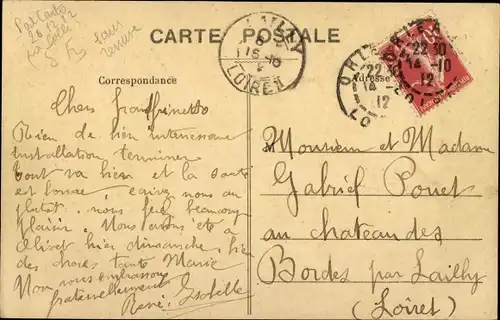 CARTE POSTALE
LAILLY
LOIRET
22 30
14 -10
12
Correspondance
Adresse
Chers
Rien de bien intéressant
installation terminée
tout va bien et la santé
est bonne écrivez nous au
plutôt, nous fera beaucoup
plaisir. Nous avons été à
Olivet hier dimanche, bien
des choses Tante Marie
Nous vous embrassons
fraternellement
René. Isabelle
Monsieur et Madame
Gabriel Pouet
au chateau des
Bordes par Lailly
(Loiret)